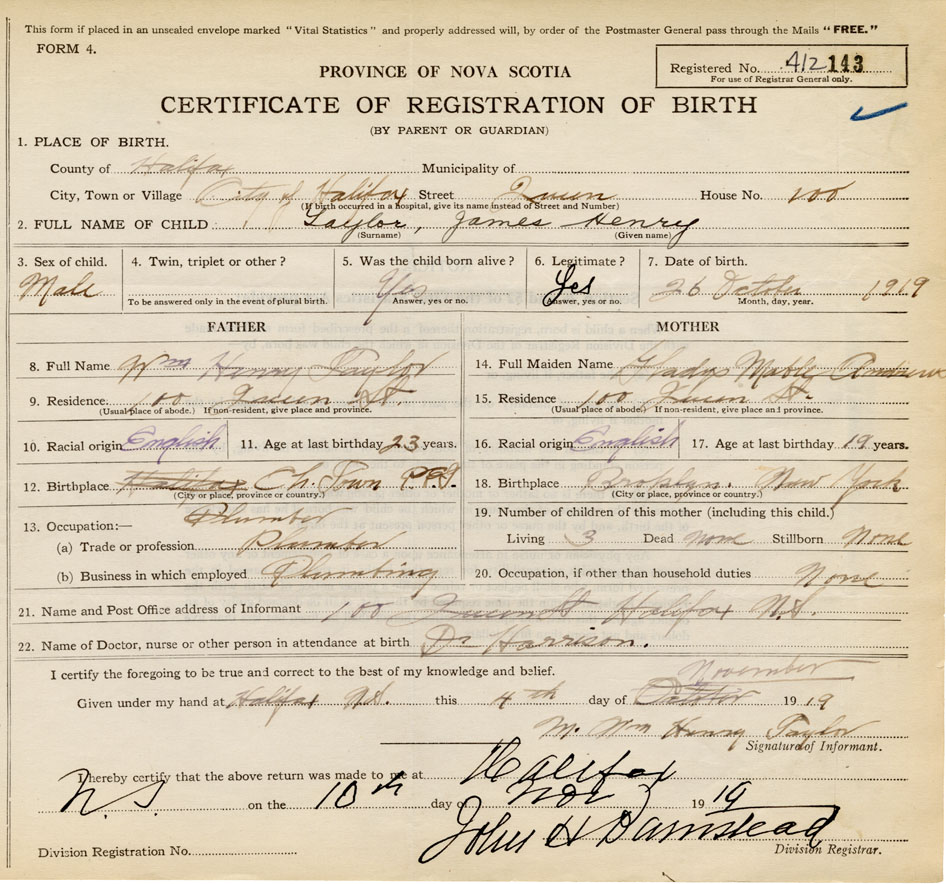 This form if placed in an unsealed envelope marked "Vital Statistics" and properly addressed will, by order of the Postmaster General pass through the Mails "FREE."
FORM 4.
Registered No. 412 143
For use of Registrar General only.
PROVINCE OF NOVA SCOTIA
CERTIFICATE OF REGISTRATION OF BIRTH
(BY PARENT OR GUARDIAN)
1. PLACE OF BIRTH.
County of Halifax Municipality of
City, Town or Village City of Halifax Street Queen House No. 100
(If birth occurred in a hospital, give its name instead of Street and Number)
2. FULL NAME OF CHILD Taylor, James Henry
(Surname) (Given name)
3. Sex of child. 4. Twin, triplet or other? 5. Was the child born alive? 6. Legitimate? 7. Date of birth.
Male Yes Yes 26 October 1919
To be answered only in the event of plural birth. Answer, yes or no. Answer, yes or no. Month, day, year.
FATHER MOTHER
8. Full Name Wm Henry Taylor 14. Full Maiden Name Gladys Mable Andrews
9. Residence. 100 Queen St. 15. Residence 100 Queen St.
(Usual place of abode.) If non-resident, give place and province. (Usual place of abode.) If non-resident, give place and province.
10. Racial origin English 11. Age at last birthday 23 years. 16. Racial origin English 17. Age at last birthday 19 years.
12. Birthplace Halifax Ch. Town P.E.I. 18. Birthplace Brooklyn. New York
(City or place, province or country.) (City or place, province or country.)
Plumber
13. Occupation:— 19. Number of children of this mother (including this child.)
(a) Trade or profession Plumber Living 3 Dead None Stillborn None
(b) Business in which employed Plumbing 20. Occupation, if other than household duties None
21. Name and Post Office address of Informant 100 Queen St Halifax N.S.
22. Name of Doctor, nurse or other person in attendance at birth Dr Harrison.
I certify the foregoing to be true and correct to the best of my knowledge and belief. November
Given under my hand at Halifax N.S. this 4th day of October 1919
M. Wm Henry Taylor
Signature of Informant.
I hereby certify that the above return was made to me at Halifax
N.S on the 10th day of Nov 1919
John H Barnstead
Division Registration No. Division Registrar.